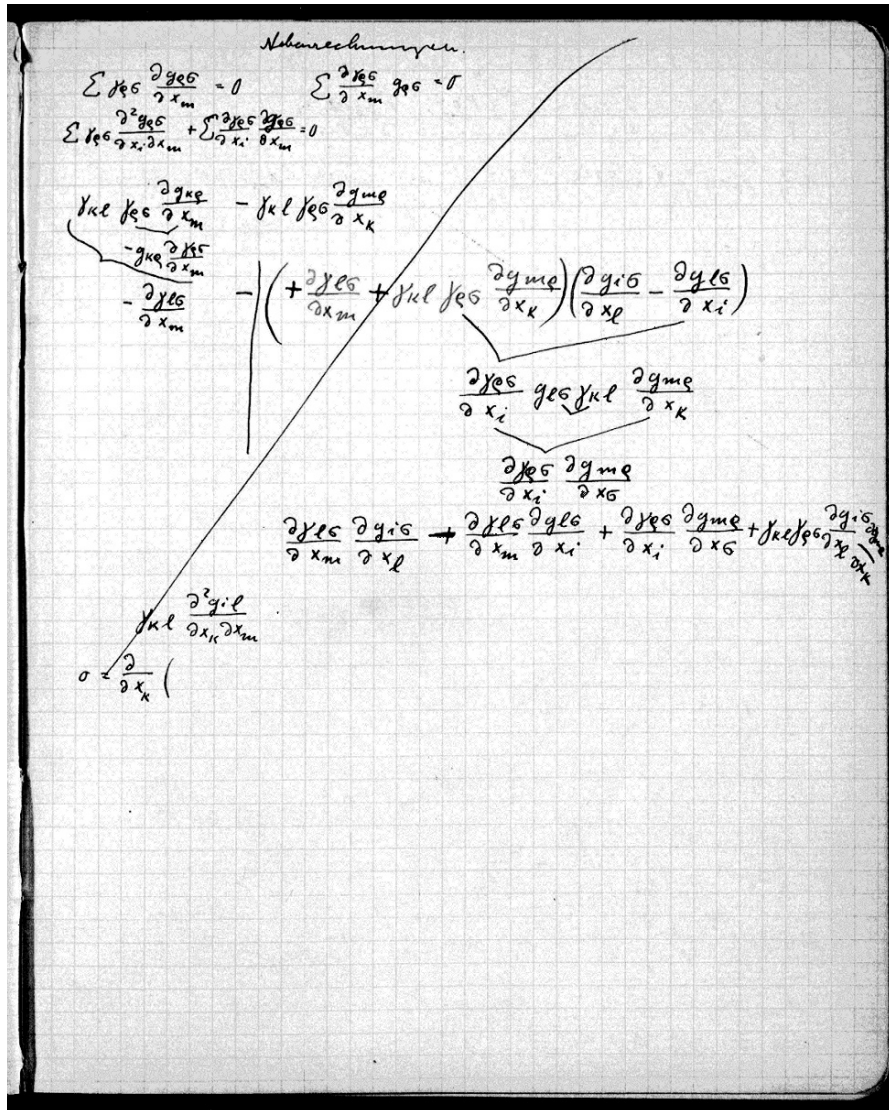 Nebenrechnungen.
∑ γ_ρσ ∂g_ρσ/∂x_m = 0   ∑ ∂γ_ρσ/∂x_m g_ρσ = 0
∑ γ_ρσ ∂²g_ρσ/∂x_i∂x_m + ∑ ∂γ_ρσ/∂x_i ∂g_ρσ/∂x_m = 0
γ_κl γ_ρσ ∂g_κρ/∂x_m − γ_κl γ_ρσ ∂g_mρ/∂x_κ
−g_κρ ∂γ_ρσ/∂x_m
−∂γ_lσ/∂x_m − | (+ ∂γ_lσ/∂x_m + γ_κl γ_ρσ ∂g_mρ/∂x_κ)(∂g_iσ/∂x_l − ∂g_lσ/∂x_i)
∂γ_ρσ/∂x_i g_lσ γ_κl ∂g_mρ/∂x_κ
∂γ_ρσ/∂x_i ∂g_mρ/∂x_σ
∂γ_lσ/∂x_m ∂g_iσ/∂x_l + ∂γ_lσ/∂x_m ∂g_lσ/∂x_i + ∂γ_ρσ/∂x_i ∂g_mρ/∂x_σ + γ_κl γ_ρσ ∂g_iσ/∂x_l ∂g_mρ/∂x_κ
γ_κl ∂²g_il/∂x_κ∂x_m
0 = ∂/∂x_κ (